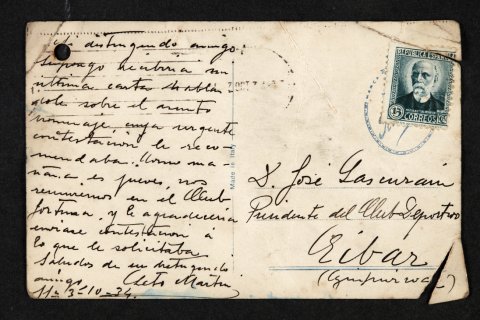 Mi distinguido amigo:
Supongo recibiria mi
última carta hablán
dole sobre el asunto
homenaje cuya urgente
contestación le reco-
mendaba. Como ma
ñana es jueves, nos
reunimos en el Club
fortuna, y le agradeceria
enviase contestación á
lo que le solicitaba.
Saludos de su distinguido
amigo Martin
3-10-34.
Made in Italy
REPUBLICA ESPAÑOLA
15
CORREOS
D. José Gascurain
Presidente del Club Deportivo
Eibar
(Guipuzcoa)